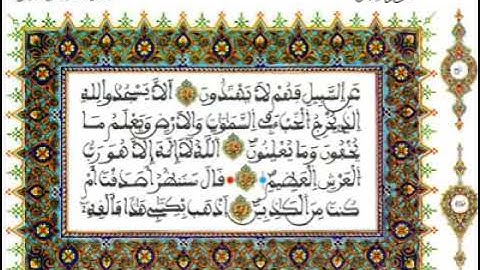 عَنِ السَّبِيلِ فَهُمْ لَا يَهْتَدُونَ أَلَّا يَسْجُدُوا لِلَّهِ
الَّذِي يُخْرِجُ الْخَبْءَ فِي السَّمَاوَاتِ وَالْأَرْضِ وَيَعْلَمُ مَا
تُخْفُونَ وَمَا تُعْلِنُونَ اللَّهُ لَا إِلَٰهَ إِلَّا هُوَ رَبُّ
الْعَرْشِ الْعَظِيمِ قَالَ سَنَنظُرُ أَصَدَقْتَ أَمْ
كُنتَ مِنَ الْكَاذِبِينَ اذْهَب بِّكِتَابِي هَٰذَا فَأَلْقِهْ